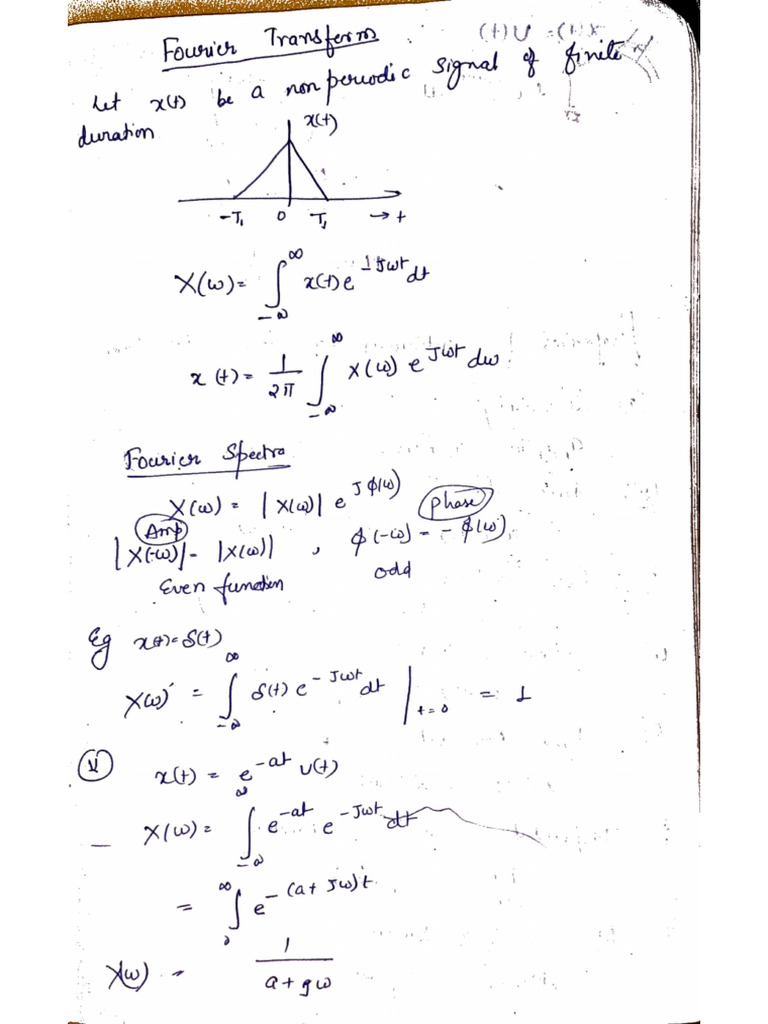 Fourier Transform
Let x(t) be a non periodic signal of finite
duration
x(t)
-T₁ 0 T₁ → t
X(ω) = ∫_{-∞}^{∞} x(t) e^{-jωt} dt
x(t) = 1/2π ∫_{-∞}^{∞} X(ω) e^{Jωt} dω
Fourier Spectra
X(ω) = |X(ω)| e^{Jφ(ω)}
Amp Phase
|X(-ω)| - |X(ω)| , φ(-ω) = - φ(ω)
Even function odd
Eg x(t) = δ(t)
X(ω) = ∫_{-∞}^{∞} δ(t) e^{-Jωt} dt |_{t=0} = 1
x(t) = e^{-at} U(t)
X(ω) = ∫_{-∞}^{∞} e^{-at} e^{-Jωt} dt
= ∫_{0}^{∞} e^{-(a+Jω)t}
X(ω) = 1/(a+jω)